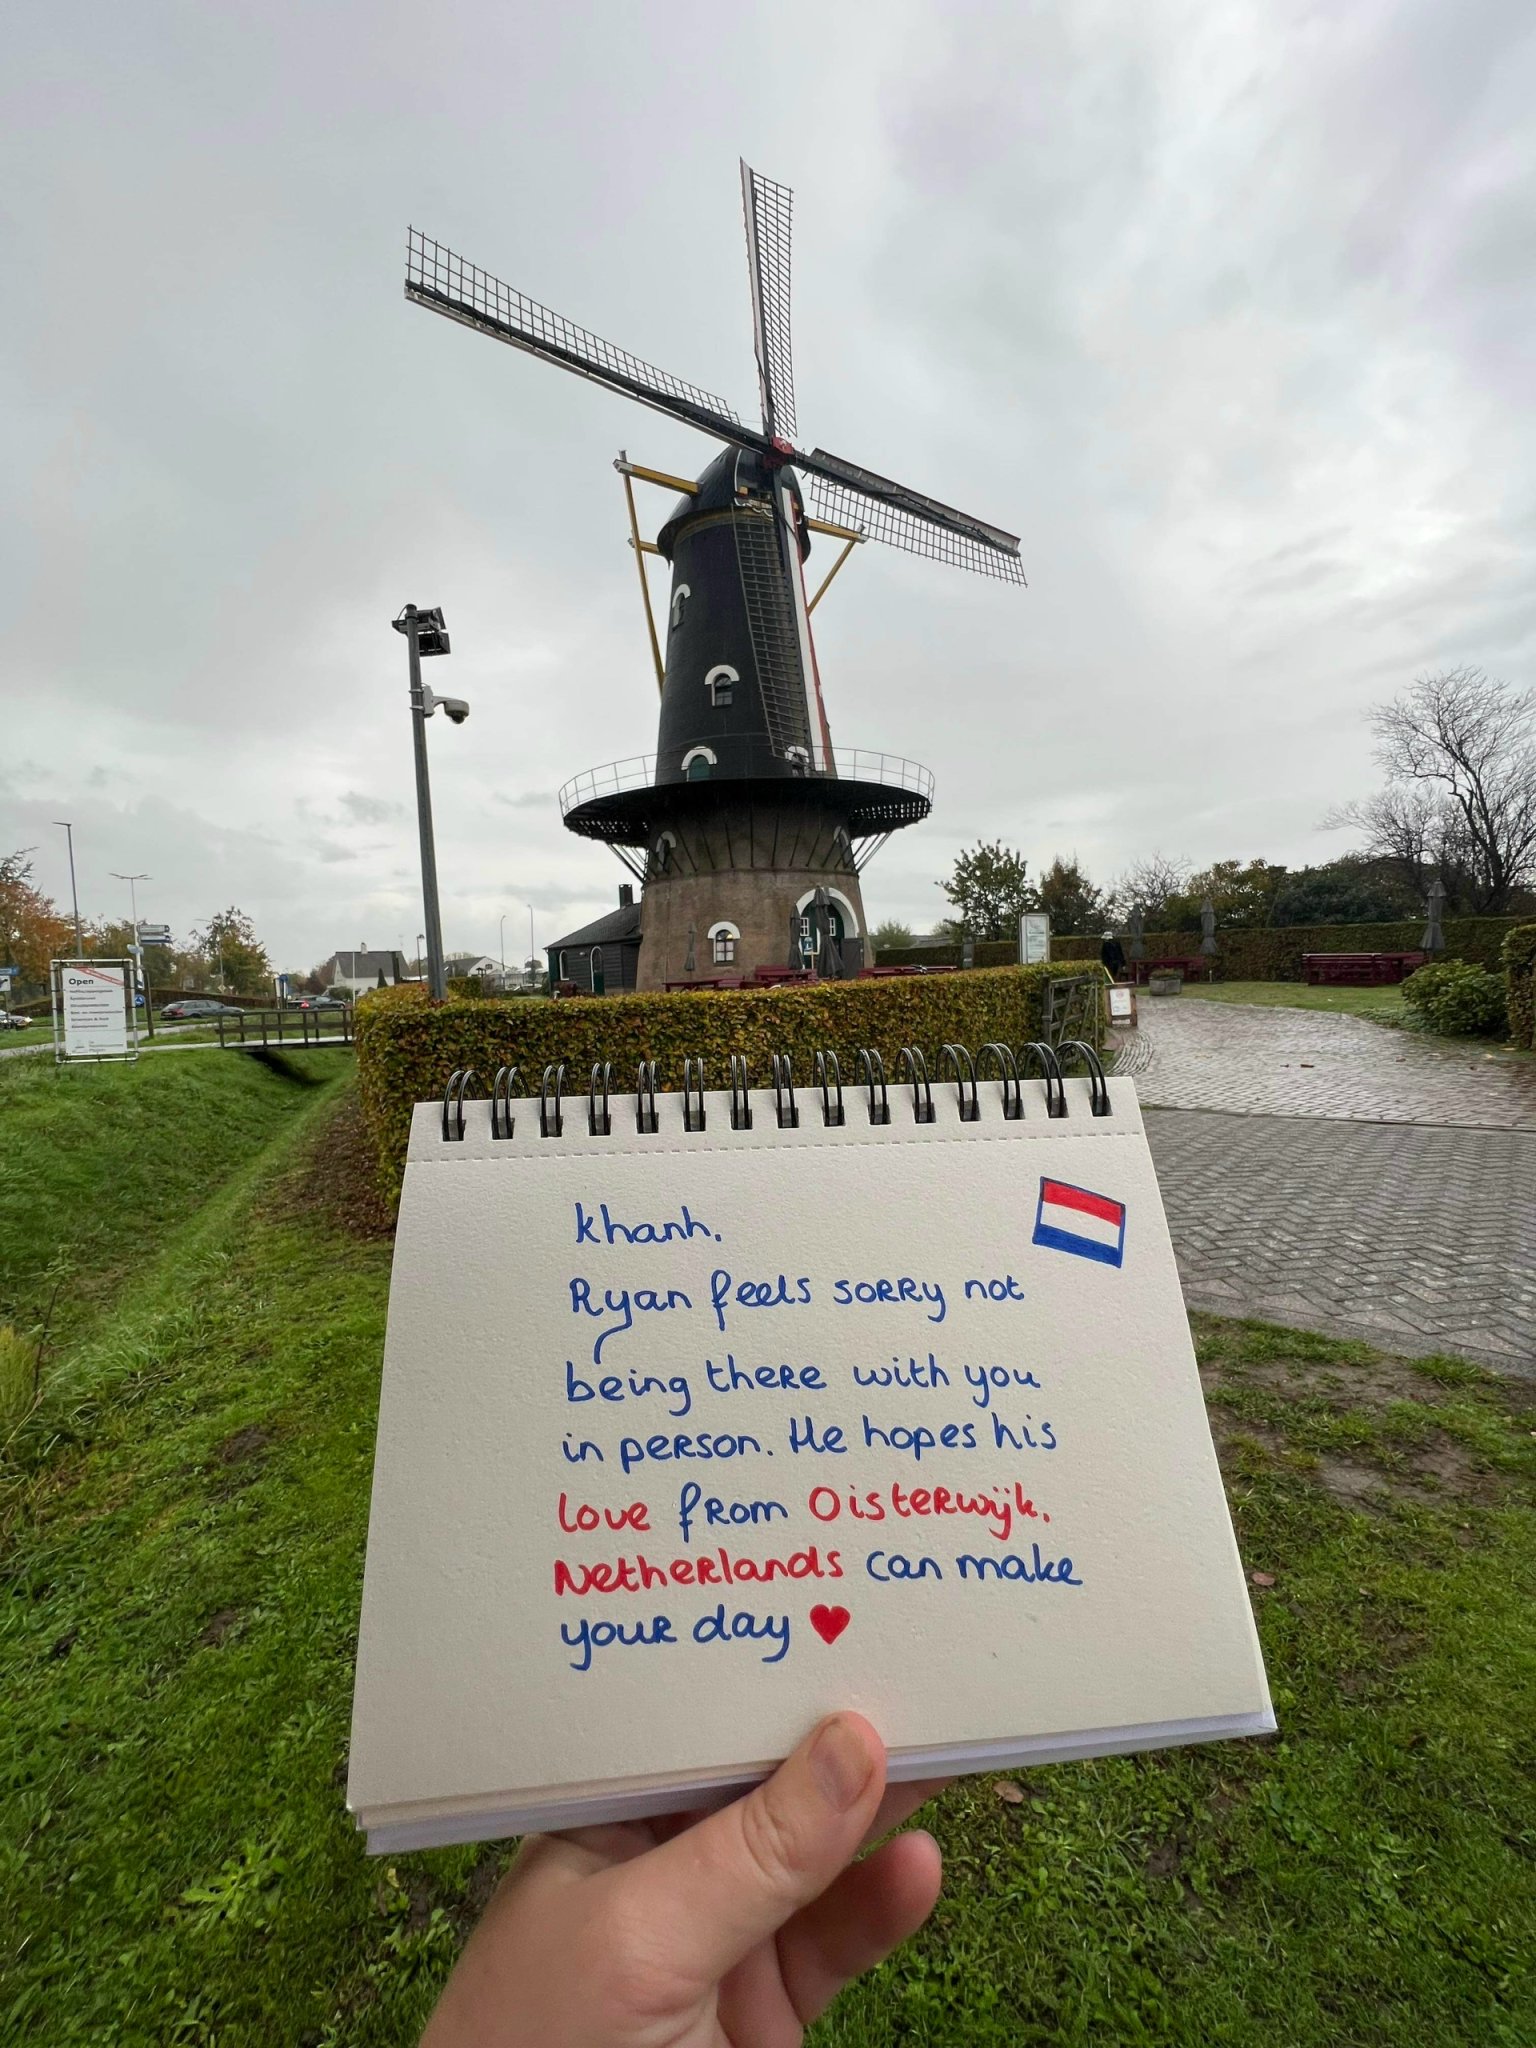 Open
Khanh,
Ryan feels sorry not
being there with you
in person. He hopes his
love from Oisterwijk,
Netherlands can make
your day